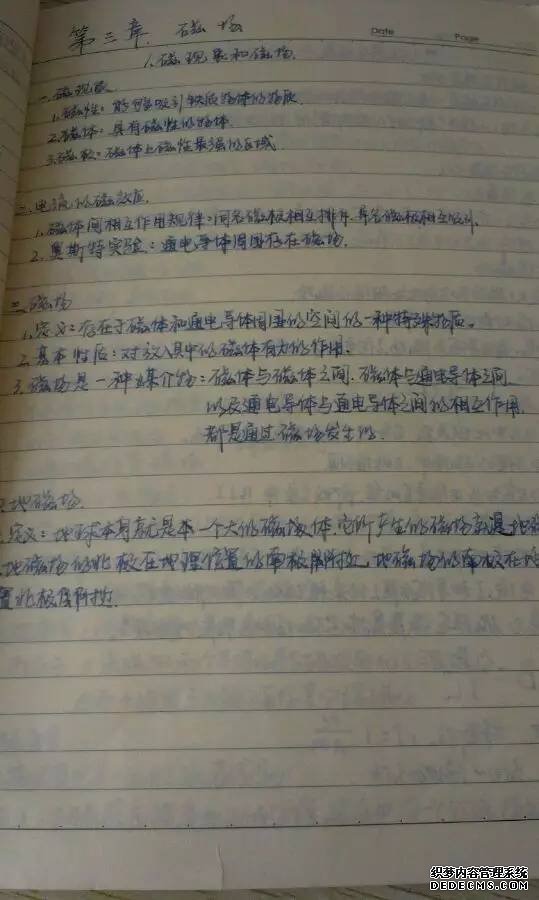 第三章. 磁场
Date Page
1.磁现象和磁场.
一.磁现象
1.磁性: 能够吸引铁质物体的性质
2.磁体: 具有磁性的物体.
3.磁极: 磁体上磁性最强的区域.
二.电流的磁效应.
1.磁体间相互作用规律: 同名磁极相互排斥. 异名磁极相互吸引.
2.奥斯特实验: 通电导体周围存在磁场.
三.磁场
1.定义: 存在于磁体和通电导体周围的空间的一种特殊物质。
2.基本性质: 对放入其中的磁体有力的作用.
3.磁场是一种媒介物: 磁体与磁体之间. 磁体与通电导体之间.
以及通电导体与通电导体之间的相互作用.
都是通过磁场发生的.
地磁场.
定义: 地球本身就是本一个大的磁体.它所产生的磁场就是地
地磁场的北极在地理位置的南极附近, 地磁场的南极在
置北极附近.
织梦内容管理系统
DEDECMS.COM